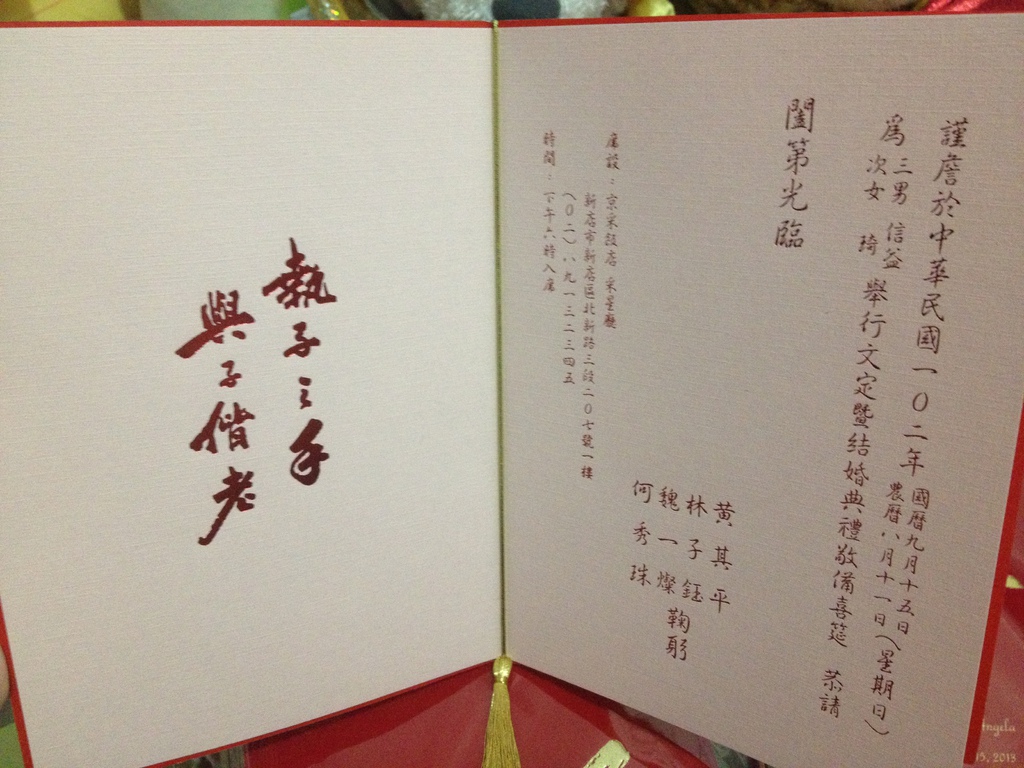 謹詹於中華民國一0二年國曆九月十五日農曆八月十一日(星期日)
為三男信益次女琦舉行文定暨結婚典禮敬備喜筵 恭請
闔第光臨
黃其平
林子鈺
魏一燦
何秀珠
鞠躬
席設：京采飯店 采星廳
新店市新店區北新路三段二0七號一樓
(0二)八九一三二三四五
時間：下午六時入席
執子之手
與子偕老
Angela
15, 2013